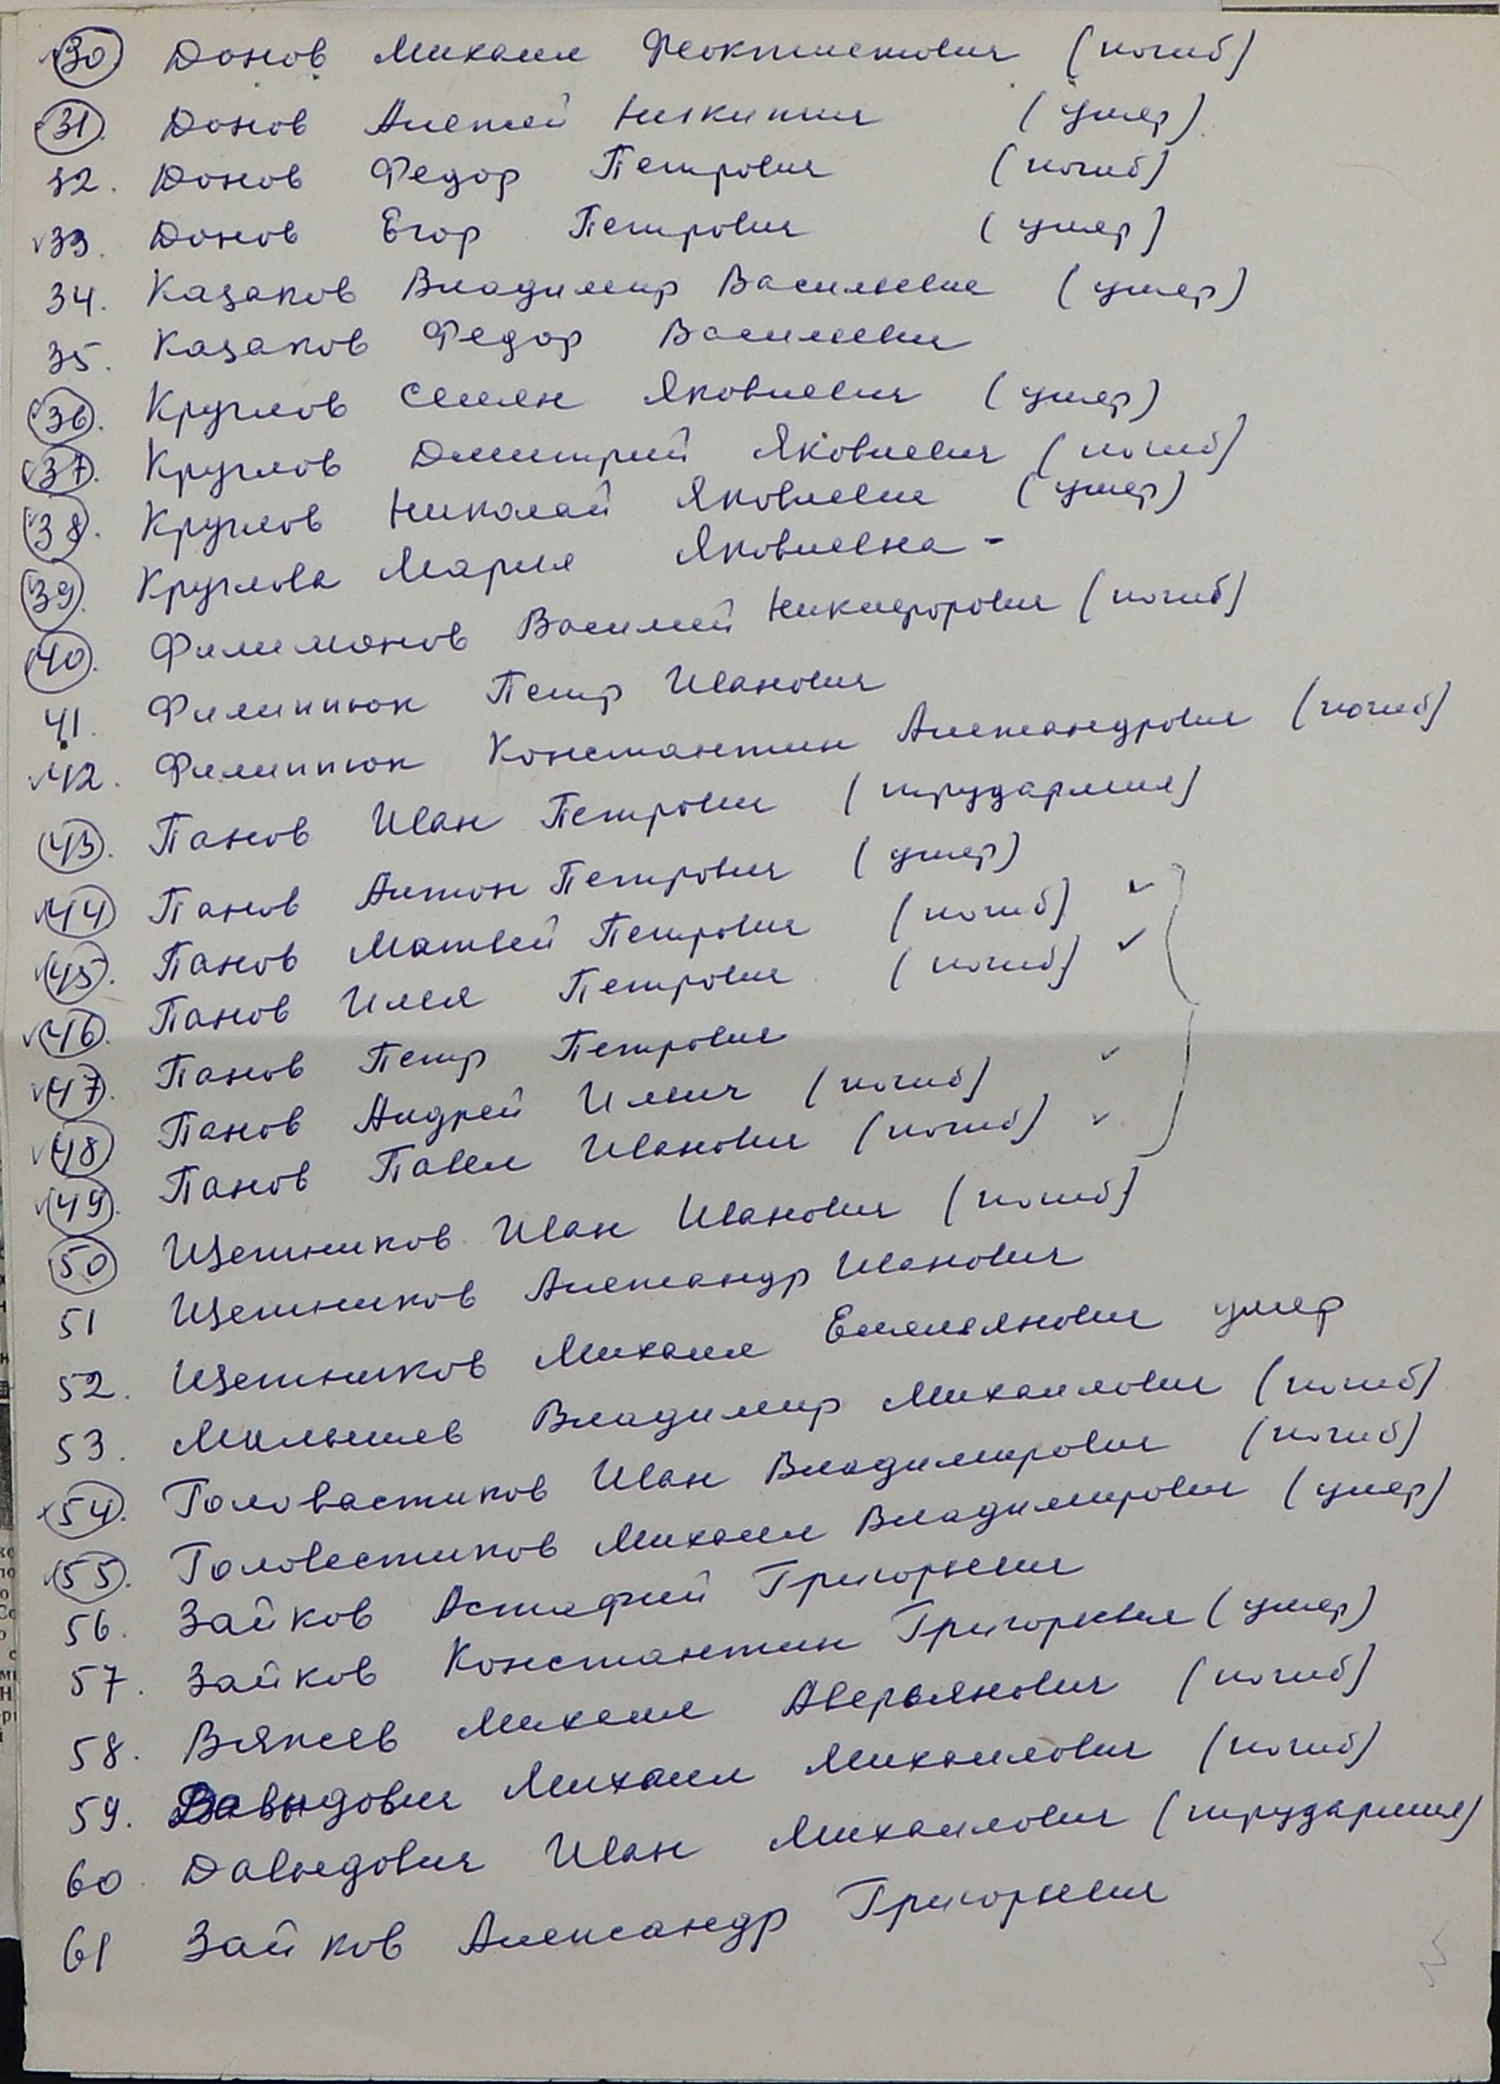 30 Донов Михаил Феоктистович (погиб)
31. Донов Алексей Никитич (умер)
32. Донов Федор Петрович (погиб)
33. Донов Егор Петрович (умер)
34. Казаков Владимир Васильевич (умер)
35. Казаков Федор Васильевич
36. Круглов Семен Яковлевич (умер)
37. Круглов Дмитрий Яковлевич (погиб)
38. Круглов Николай Яковлевич (умер)
39. Круглова Мария Яковлевна -
40. Филимонов Василий Никифорович (погиб)
41. Филиппюк Петр Иванович
42. Филиппюк Константин Александрович (погиб)
43. Панов Иван Петрович (трудармия)
44 Панов Антон Петрович (умер)
45. Панов Матвей Петрович (погиб)
46. Панов Илья Петрович (погиб)
47. Панов Петр Петрович
48 Панов Андрей Ильич (погиб)
49. Панов Павел Иванович (погиб)
50 Щетников Иван Иванович (погиб)
51 Щетников Александр Иванович
52. Щетников Михаил Емельянович умер
53. Малышев Владимир Михаилович (погиб)
54. Головастиков Иван Владимирович (погиб)
55. Головестиков Михаил Владимирович (умер)
56. Зайков Астафий Григорьевич
57. Зайков Константин Григорьевич (умер)
58. Михаил Аверьянович (погиб)
59. Давыдович Михаил Михаилович (погиб)
60 Давыдович Иван Михаилович (трудармия)
61 Зайков Александр Григорьевич